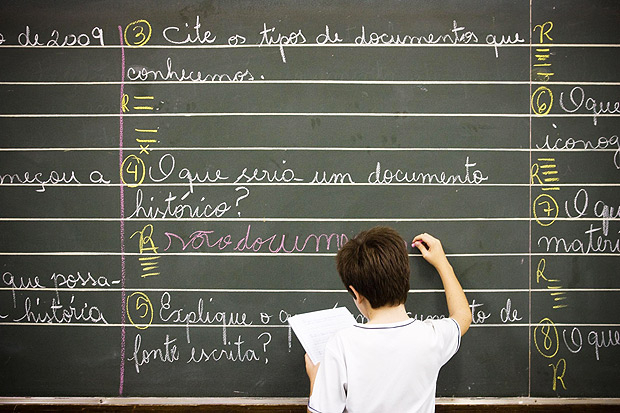 de 2009
meçou a
que possa-
história
3 Cite os tipos de documentos que
conhecemos.
R
4 O que seria um documento
histórico?
R são docume
5 Explique o de
fonte escrita?
R
6 O que
iconog
R
7 O que
materi
R
8 O que
R